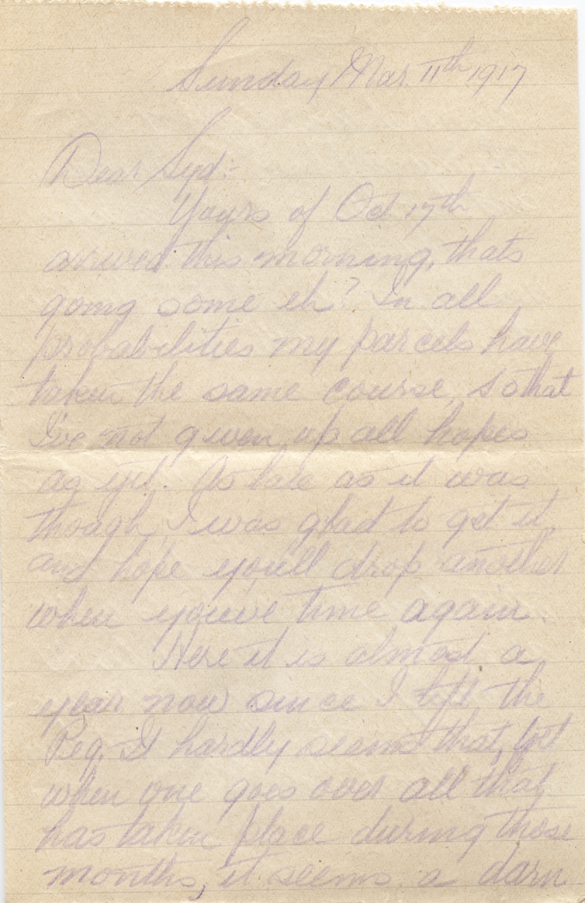 Sunday Mar. 11th 1917
Dear Syd:-
Yours of Oct 17th
arrived this morning, thats
going some eh? In all
probabilities my parcels have
taken the same course, so that
I've not given up all hopes
as yet. As late as it was
though, I was glad to get it,
and hope you'll drop another
when you've time again.
Here it is almost a
year now since I left the
Peg. It hardly seems that, but
when one goes over all that
has taken place during those
months, it seems a darn